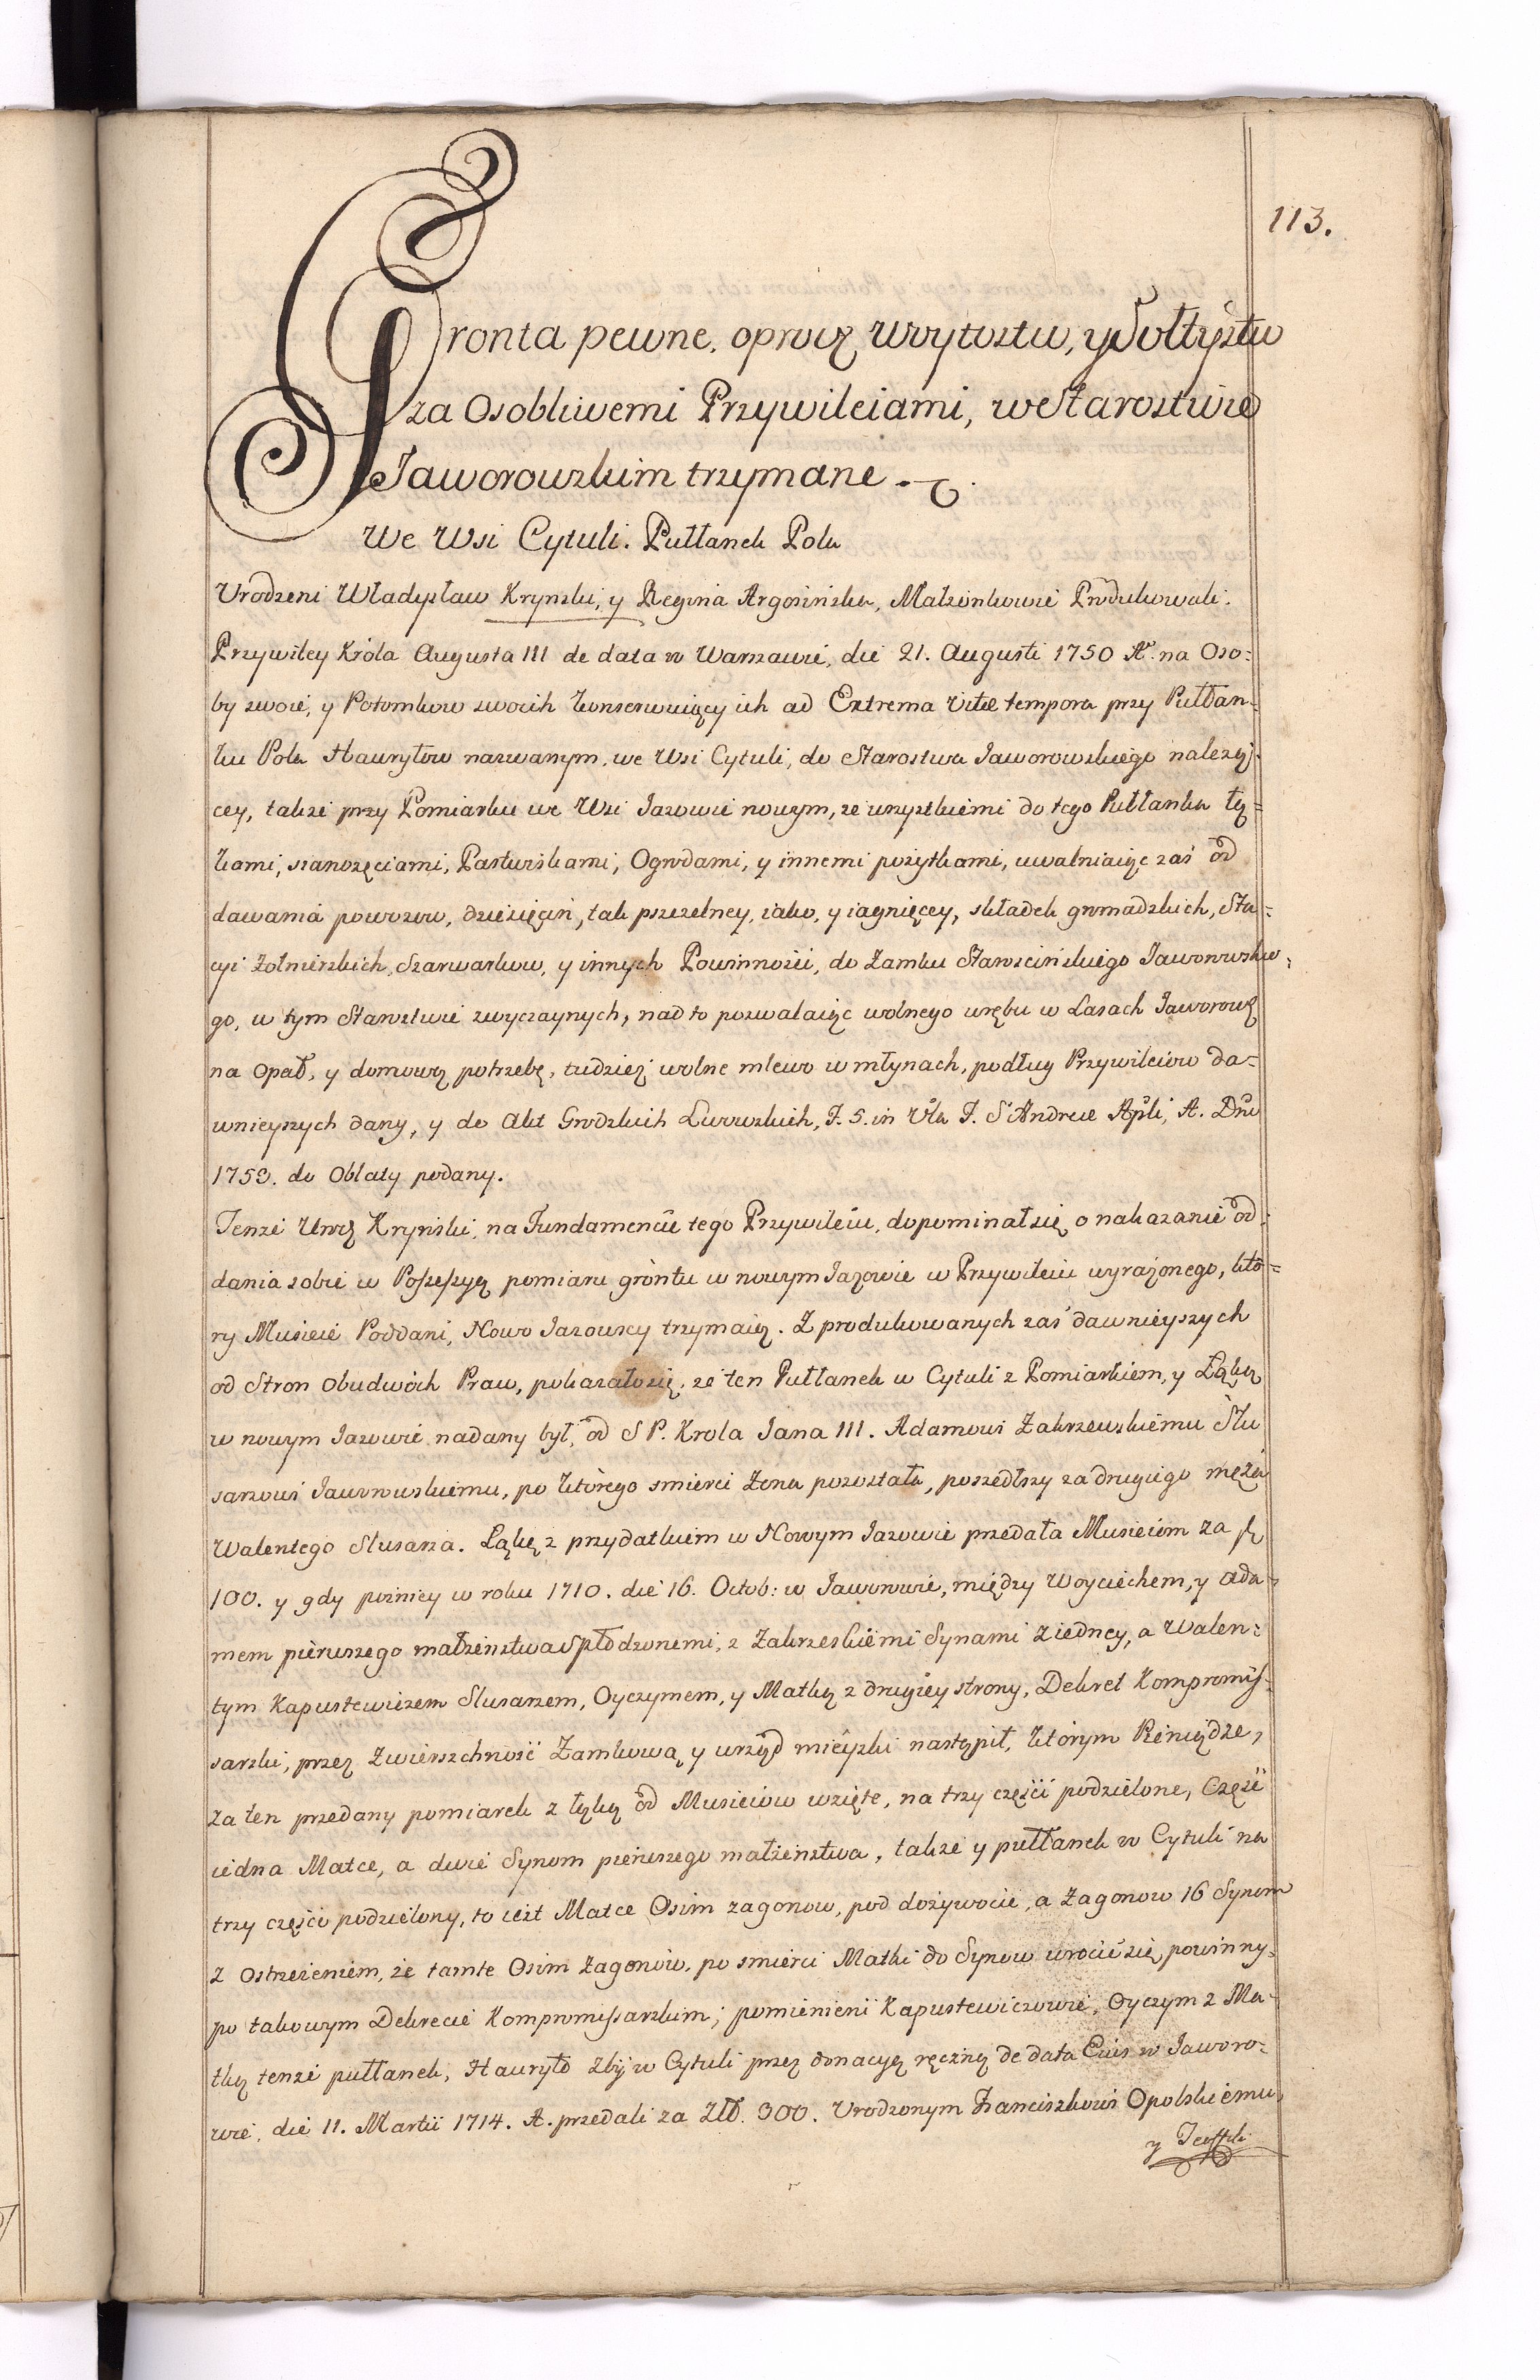 113.
Gronta pewne, oprocz Woytostw, y Sołtystw
za Osobliwemi Przywileiami, w Starostwie
Jaworowskim trzymane.
We Wsi Cytuli. Pułłanek Pola
Urodzeni Władysław Krynski, y Regina Argosińska, Małzonkowie Produkowali.
Przywiley Króla Augusta III de data w Warszawie, die 21. Augusti 1750 A. na Oso=
by swoie, y Potomkow swoich konserwuiący ich ad Extrema vitæ tempora przy Pułłan=
ku Pola Hauryłow nazwanym, we Wsi Cytuli, do Starostwa Jaworowskiego należą=
cey, takze przy Pomiarku we Wsi Jazowie nowym, ze wszystkiemi do tego Pułłanka łą=
kami, sianożęciami, Pastwiskami, Ogrodami, y innemi pożytkami, uwalniaiąc zaś od
dawania powozow, dziesięcin, tak pszczelney, iako, y iagnięcey, składek gromadzkich, Sta=
cyi Żołnierskich, Szarwarkow, y innych Powinnosci, do Zamku Starościńskiego Jaworowskie=
go, w tym Starostwie zwyczaynych, nad to pozwalaiąc wolnego wrębu w Lasach Jaworowz
na opał, y domową potrzebę, tudziez wolne mlewo w młynach, podług Przywileiow da=
wnieyszych dany, y do Akt Grodzkich Lwowskich, F. 5. in Vla F. S Andreæ Apli, A. Dni
1753. do Oblaty podany.
Tenze Urodz Kryński, na Fundamencie tego Przywileiu, dopominał się o nakazanie od=
dania sobie w Possessyą pomiaru gróntu w nowym Jazowie w Przywileiu wyrażonego, któ=
ry Musieie Poddani, Nowo Jazowscy trzymaią. Z produkowanych zaś dawnieyszych
od Stron Obudwóch Praw, pokazało się, ze ten Pułłanek w Cytuli z Pomiarkiem, y Łąką
w nowym Jazowie nadany był, od S P. Krola Jana III. Adamowi Zakrzewskiemu Slu
sarzowi Jaworowskiemu, po którego smierci Zona pozostała, poszedłszy za drugiego męża
Walentego Slusarza. Łąkę z przydatkiem w Nowym Jazowie przedała Musieiom za
100. y gdy pozniey w roku 1710. die 16. Octob: w Jaworowie, między Woyciechem, y Ada=
mem pierwszego małzenstwa Spłodzonemi, z Zakrzeskiemi Synami z iedney, a Walen=
tym Kapustewiczem Slusarzem, Oyczymem, y Matką z drugiey strony, Dekret Kompromis=
sarski, przez Zwierszchność Zamkową y urząd mieyski nastąpił, którym Pieniądze,
za ten przedany pomiarek z łąką od Musieiow wzięte, na trzy części podzielone, Część
iedna Matce, a dwie Synom pierwszego małżenstwa, takze y pułłanek w Cytuli na
trzy części podzielony, to iest Matce Osim zagonow, pod dożywocie, a Zagonow 16 Synom
z ostrzeżeniem, że tamte Osim Zagonow, po smierci Matki do Synow wrocić się powinny,
po takowym Dekrecie Kompromissarskim; pomienieni Kapustewiczowie, Oyczym z Ma=
tką tenze pułłanek, Hauryło Zbij w Cytuli przez donacyą ręczną de data Eius w Jaworo=
wie, die 11. Martii 1714. A. przedali za Złł. 300. Urodzonym Franciszkowi Opolskiemu,
y Teoffili